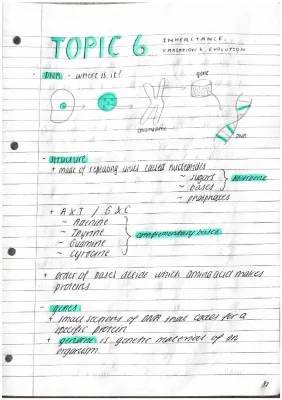 TOPIC 6
INHERITANCE,
VARIATION & EVOLUTION
- DNA - where is it?
gene
chromosome
DNA
- structure
+ made of repeating units called nucleotides
~ sugars
~ bases
~ phosphates
backbone
+ A X T / G X C
~ Adenine
~ Thymine
~ Guanine
~ Cytosine
complementary bases
+ order of bases decide which amino acid makes
proteins
- genes
+ small sections of DNA that codes for a
specific protein
+ genome is genetic material of an
organism